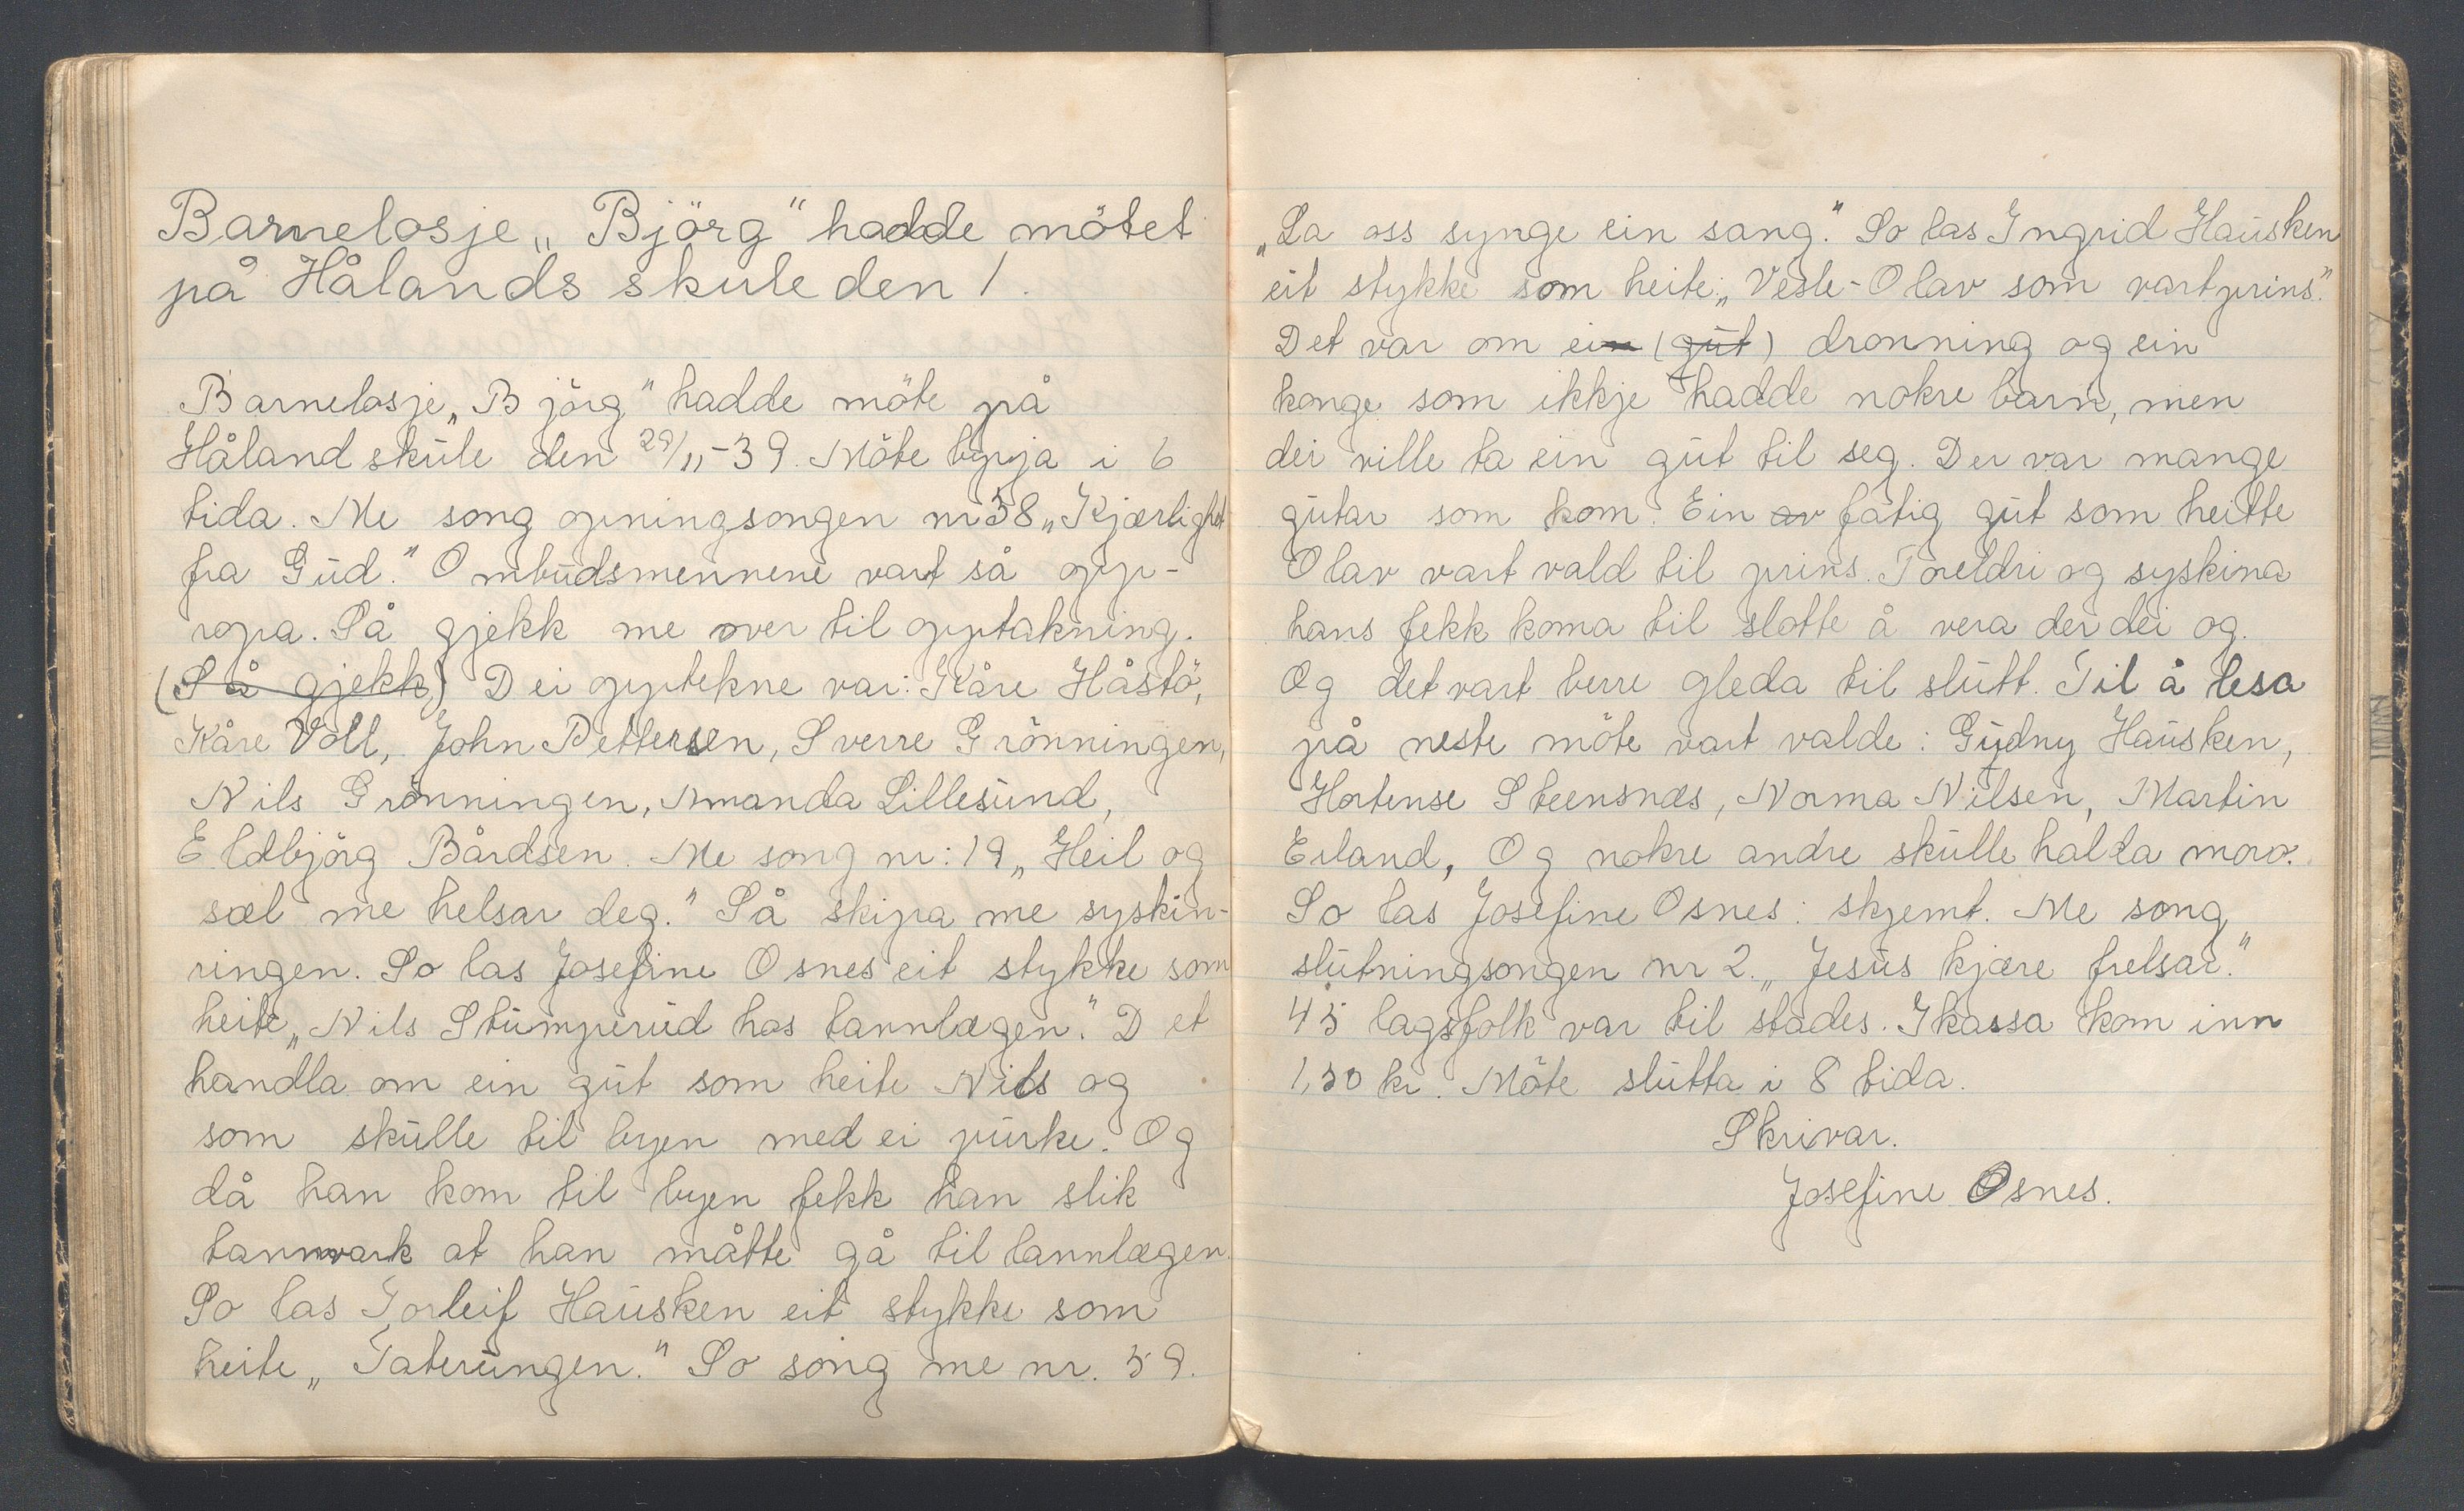 Barnelosje „Björg“ hadde mötet
på Hålands skule den 1.
Barnelosje „Björg“ hadde möte på
Håland skule den 29/11-39. Möte byrja i 6
tida. Me song opningsongen nr 38 „Kjærlighet
fra Gud.“ Ombudsmennene vart så opp-
ropa. Så gjekk me over til opptakning.
(Så gjekk) Dei opptekne var: Kåre Håstö,
Kåre Voll, John Pettersen, Sverre Grönningen,
Nils Grönningen, Amanda Lillesund,
Eldbjörg Bårdsen. Me song nr: 19 „Heil og
sæl me helsar deg.“ Så skipa me syskin-
ringen. So las Josefine Osnes eit stykke som
heite „Nils Stumperud hos tannlægen.“ Det
handla om ein gut som heite Nils og
som skulle til byen med ei purke. Og
då han kom til byen fekk han slik
tannvark at han måtte gå til tannlægen.
So las Torleif Hausken eit stykke som
heite „Taterungen.“ So song me nr. 59.
„La oss synge ein sang.“ So las Ingrid Hausken
eit stykke som heite: „Vesle-Olav som vart prins.“
Det var om ein (gut) dronning og ein
konge som ikkje hadde nokre barn, men
dei ville ta ein gut til seg. Der var mange
gutar som kom. Ein av fatig gut som heitte
Olav vart vald til prins. Foreldri og syskina
hans fekk koma til slotte å vera der dei og.
Og det vart berre gleda til slutt. Til å lesa
på neste möte vart valde: Gudny Hausken,
Hortense Steensnæs, Norma Nilsen, Martin
Erland, Og nokre andre skulle halda moro.
So las Josefine Osnes: skjemt. Me song
slutningsongen nr 2. „Jesus kjære frelsar.“
45 lagsfolk var til stades. I kassa kom inn
1,50 kr. Möte slutta i 8 tida.
Skrivar.
Josefine Osnes.